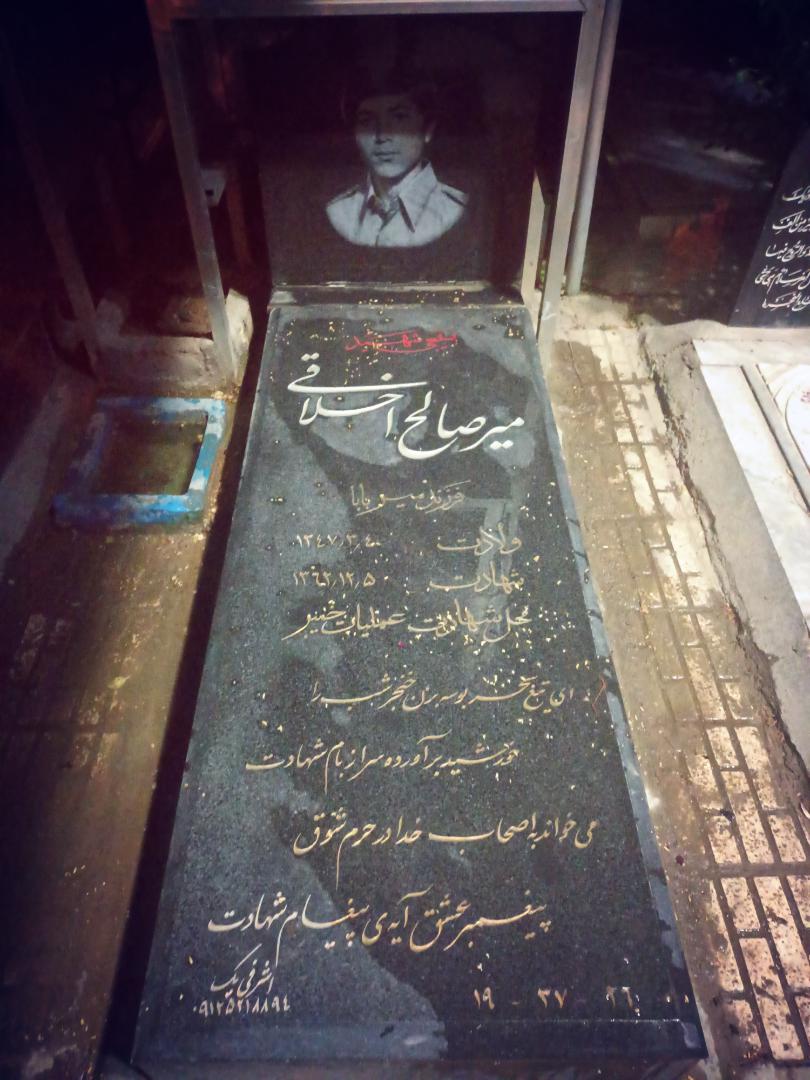 بسیجی شهید
میرصالح اخلاقی
فرزند میر بابا
ولادت ۱۳۴۷٫۳٫۴
شهادت ۱۳۶۲٫۱۲٫۵
محل شهادت عملیات خیبر
ای تیغ سحر بوسه بزن خنجر شب را
خورشید برآورده سر از بام شهادت
می خواند به اصحاب خدا در حرم شوق
پیغمبر عشق آیه‌ی پیغام شهادت
اشرفی یک
۰۹۱۲۵۲۱۸۸۹۴
۲۶ - ۳۷ - ۱۹